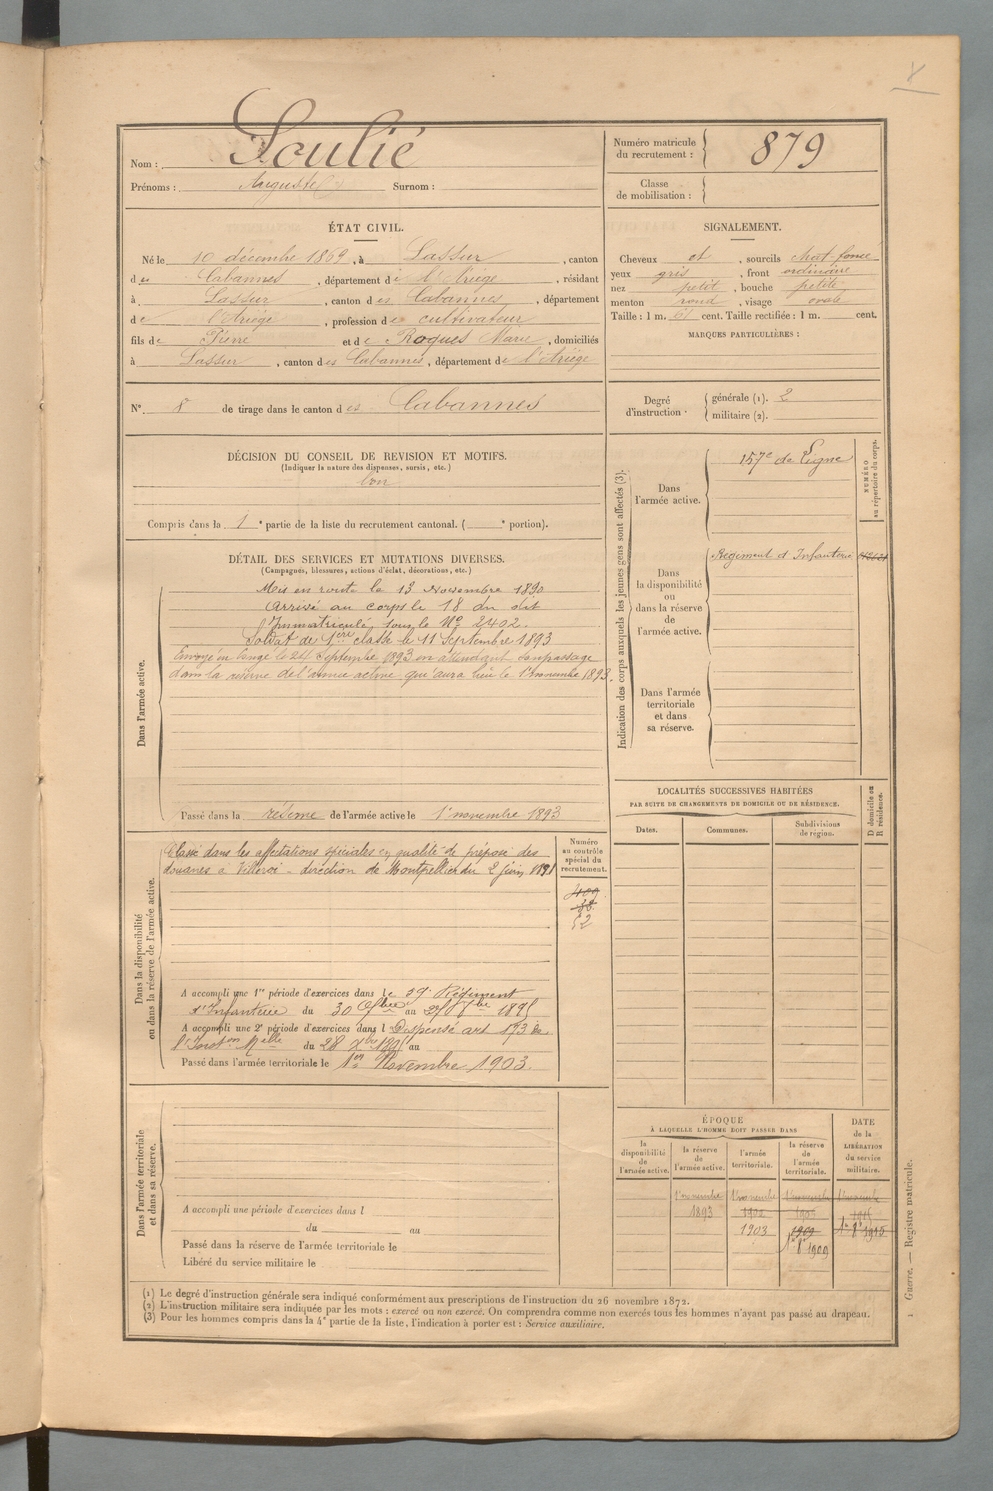 Nom : Soulié
Prénoms : Auguste Surnom :
Numéro matricule du recrutement : 879
Classe de mobilisation :
ÉTAT CIVIL.
Né le 10 décembre 1869, à Lassur, canton
des Cabannes, département de l'Ariège, résidant
à Lassur, canton des Cabannes, département
de l'Ariège, profession de cultivateur
fils de Pierre et de Roques Marie, domiciliés
à Lassur, canton des Cabannes, département de l'Ariège
SIGNALEMENT.
Cheveux et, sourcils chat. foncé
yeux gris, front ordinaire
nez petit, bouche petite
menton rond, visage ovale
Taille : 1 m. 61 cent. Taille rectifiée : 1 m. cent.
MARQUES PARTICULIÈRES :
N° 8 de tirage dans le canton des Cabannes
Degré d'instruction. générale (1). 2
militaire (2).
DÉCISION DU CONSEIL DE REVISION ET MOTIFS.
(Indiquer la nature des dispenses, sursis, etc.)
bon
Compris dans la 1e partie de la liste du recrutement cantonal. ( e portion).
DÉTAIL DES SERVICES ET MUTATIONS DIVERSES.
(Campagnes, blessures, actions d'éclat, décorations, etc.)
Dans l'armée active.
Mis en route le 13 Novembre 1890
Arrivé au corps le 18 du dit
Immatriculé sous le No 2402.
Soldat de 1ère classe le 11 Septembre 1893
Envoyé en congé le 24 Septembre 1893 en attendant son passage
dans la réserve de l'armée active qui aura lieu le 1er novembre 1893.
Passé dans la réserve de l'armée active le 1er novembre 1893
Indication des corps auxquels les jeunes gens sont affectés (3).
NUMÉRO au répertoire du corps.
Dans l'armée active.
157e de Ligne
Dans la disponibilité ou dans la réserve de l'armée active.
Régiment d'Infanterie
Dans l'armée territoriale et dans sa réserve.
LOCALITÉS SUCCESSIVES HABITÉES
PAR SUITE DE CHANGEMENTS DE DOMICILE OU DE RÉSIDENCE.
Dates. Communes. Subdivisions de région. D domicile ou R résidence.
Dans la disponibilité ou dans la réserve de l'armée active.
Numéro au contrôle spécial du recrutement.
Classé dans les affectations spéciales en qualité de préposé des
douanes à Villeroi - direction de Montpellier du 2 juin
52
A accompli une 1re période d'exercices dans le 59e Régiment
d'Infanterie du 30 au 1895
A accompli une 2e période d'exercices dans l Dispensé art 193 de
l'Inston Melle du 28 Xbre 1895 au
Passé dans l'armée territoriale le 1er Novembre 1903.
Dans l'armée territoriale et dans sa réserve.
A accompli une période d'exercices dans l
du au
Passé dans la réserve de l'armée territoriale le
Libéré du service militaire le
ÉPOQUE
À LAQUELLE L'HOMME DOIT PASSER DANS
la disponibilité de l'armée active. la réserve de l'armée active. l'armée territoriale. la réserve de l'armée territoriale.
DATE de la LIBÉRATION du service militaire.
1er novembre 1er novembre 1er novembre 1er novembre
1893
1903 1909
1er 8bre 1909
1er 8bre 1915
(1) Le degré d'instruction générale sera indiqué conformément aux prescriptions de l'instruction du 26 novembre 1872.
(2) L'instruction militaire sera indiquée par les mots : exercé ou non exercé. On comprendra comme non exercés tous les hommes n'ayant pas passé au drapeau.
(3) Pour les hommes compris dans la 4e partie de la liste, l'indication à porter est : Service auxiliaire.
1 Guerre. — Registre matricule.